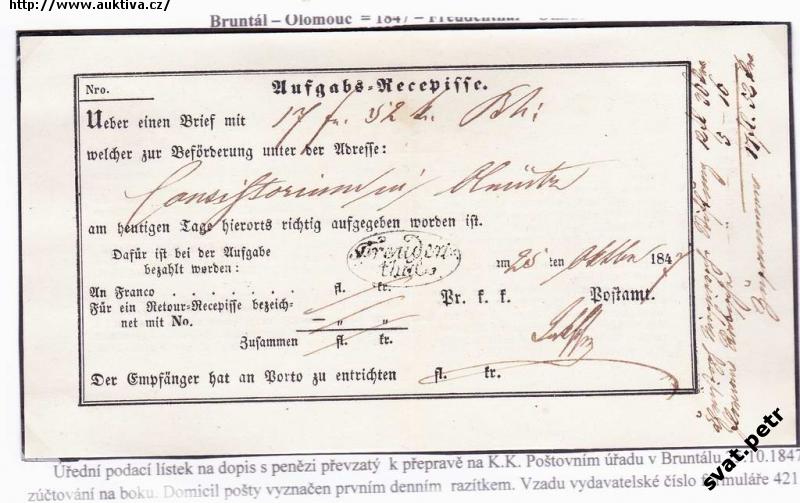 http://www.auktiva.cz/
Bruntál – Olomouc = 1847 – Freudenthal
Nro.
Aufgabs-Recepisse.
Ueber einen Brief mit 17 fr. 52 kr.
welcher zur Beförderung unter der Adresse:
Consistorium in Olmütz
am heutigen Tage hierorts richtig aufgegeben worden ist.
Dafür ist bei der Aufgabe
bezahlt worden:
Freuden-
thal
am 25 ten Oktber 1847
An Franco . . . . . . . fl. kr.
Für ein Retour-Recepisse bezeich-
net mit No. — „ „
Pr. k. k. Postamt.
Zusammen fl. kr.
Der Empfänger hat an Porto zu entrichten fl. kr.
5 - 16
Zusammen 17 fl. 52
svat.petr
Úřední podací lístek na dopis s penězi převzatý k přepravě na K.K. Poštovním úřadu v Bruntálu .10.1847
zúčtování na boku. Domicil pošty vyznačen prvním denním razítkem. Vzadu vydavatelské číslo formuláře 421